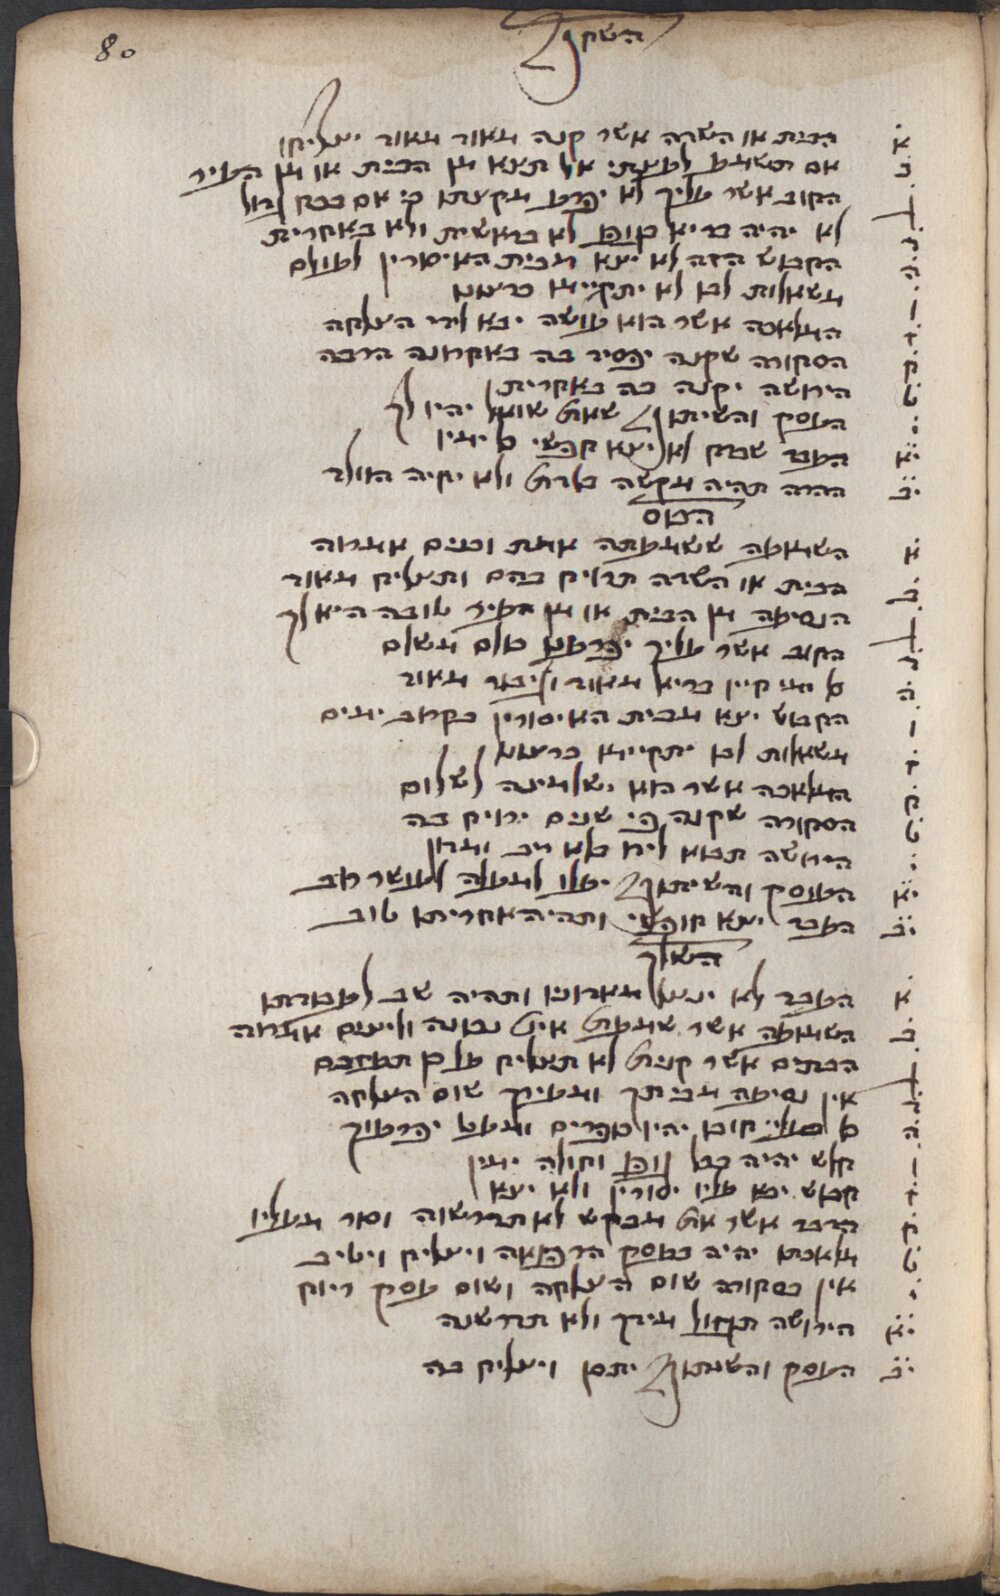 80
השקנ
א הבית או השדה אשר קנה מאור מאור יצליחו
ב אם תשמע לעצתי אל תצא מן הבית או מן העיר
ג החוב אשר עליך לא יפרע מקצתו כי אם בכח גדול
ד לא יהיה בריא גופו לא בראשית ולא באחרית
ה החבוש הזה לא יצא מבית האיסורין לעולם
ו משאלות לבו לא יתקיימו כרצונו
ז המלאכה אשר הוא עושה יבא לידי הצלחה
ח הסחורה שקנה יפסיד בה באחרונה הרבה
ט הירושה יזכה בה באחריתו
י העסק והשיתוף שאתה שואל יהיו לך
יא העבד שברח לא יצא חפשי כל ימיו
יב ההרה תהיה מקשה בלדתה ולא יחיה הולד
הכוס
א השמועה ששמעתה אמת ונכונים אמריה
ב הבית או השדה תרויח בהם ותצליח מאור
ג הנסיעה מן הבית או מן העיר טובה היא לך
ד החוב אשר עליך יפרענו כולם משלם
ה כל ימי חייו בריא מאור ויגבור מאור
ו החבוש יצא מבית האיסורין בקרוב ימים
ז משאלות לבו יתקיימו כרצונו
ח המלאכה אשר הוא ישלימנה לשלום
ט הסחורה שקנה פי שנים ירויח בה
י הירושה תבוא לידו בלא ריב ומדון
יא העוסק והשיתוף יעלו למעלה לעושר רוב
יב העבד יצא חופשי ותהיה אחריתו טוב
השולך
א העבד לא ינצל מאדוניו ותהיה שב לעבודתו
ב השמועה אשר שמעתה אינה נכונה וליצים אמרוה
ג הבתים אשר קנית לא תצליח על כן תעזבם
ד אין נסיעה מביתך ומעירך שום הצלחה
ה כל בעלי חובו יהיו אכזרים ומעט יפרעוך
ו חלש יהיה בכל גופו וחולה ימיו
ז חבוש יבא עליו יסורין ולא יצא
ח הדבר אשר אתה מבקש לא תדרשוה וסר מעליו
ט מלאכתו יהיה בעסק הרפואה ויצליח ויטיב
י אין בסחורה שום הצלחה ושום עסק ריוח
יא הירושה תגזול מידך ולא תירשנה
יב העסק והשיתוף יתכן ויצליח בה